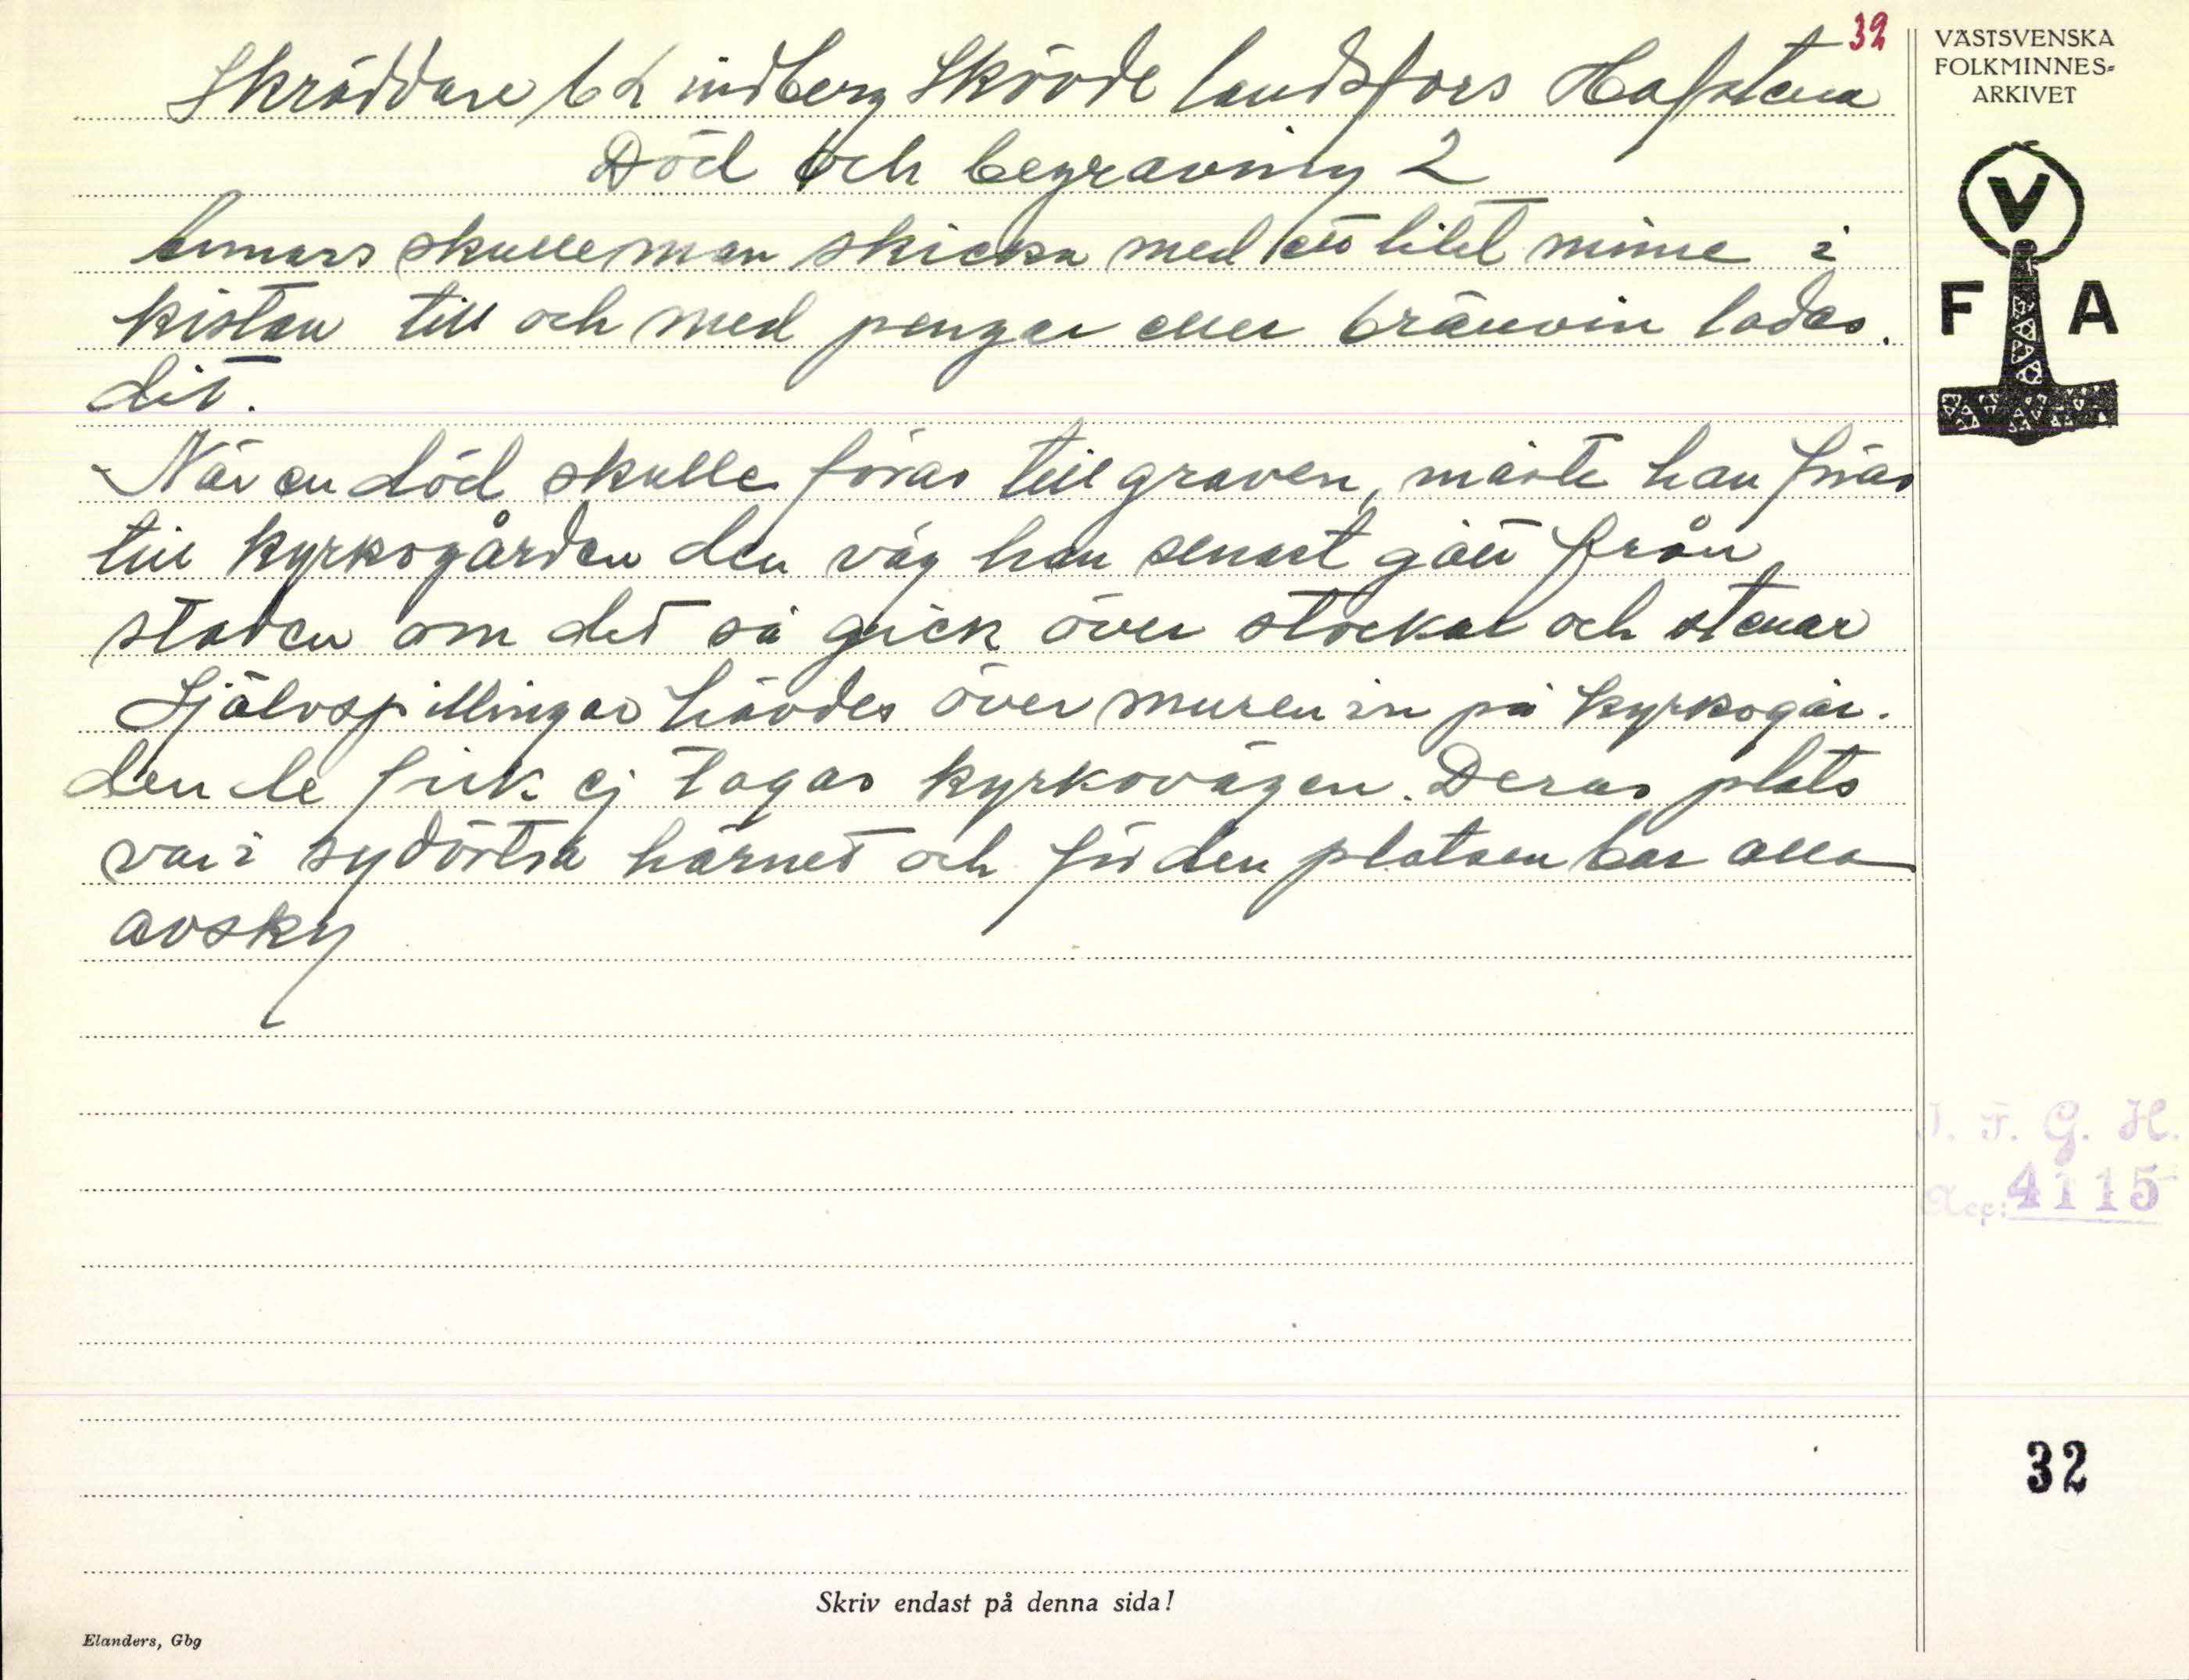 32
Skräddare G Lindberg Skövde landsförs Hafstena
Död och begravning 2
Annars skulle man skicka med ett litet minne i
kistan till och med pengar eller bränvin lades.
dit.
När en död skulle föras till graven, måste han föras
till kyrkogården den väg han senast gått från
staden om det så gick över stockar och stenar
Självspillingar hävdes över muren in på kyrkogår.
den de fick ej tagas kyrkovägen. Deras plats
var i sydöstra hörnet och för den platsen bar alla
avsky
VÄSTSVENSKA
FOLKMINNES=
ARKIVET
V
F A
I. F. G. H.
Acc: 4115
32
Skriv endast på denna sida!
Elanders, Gbg